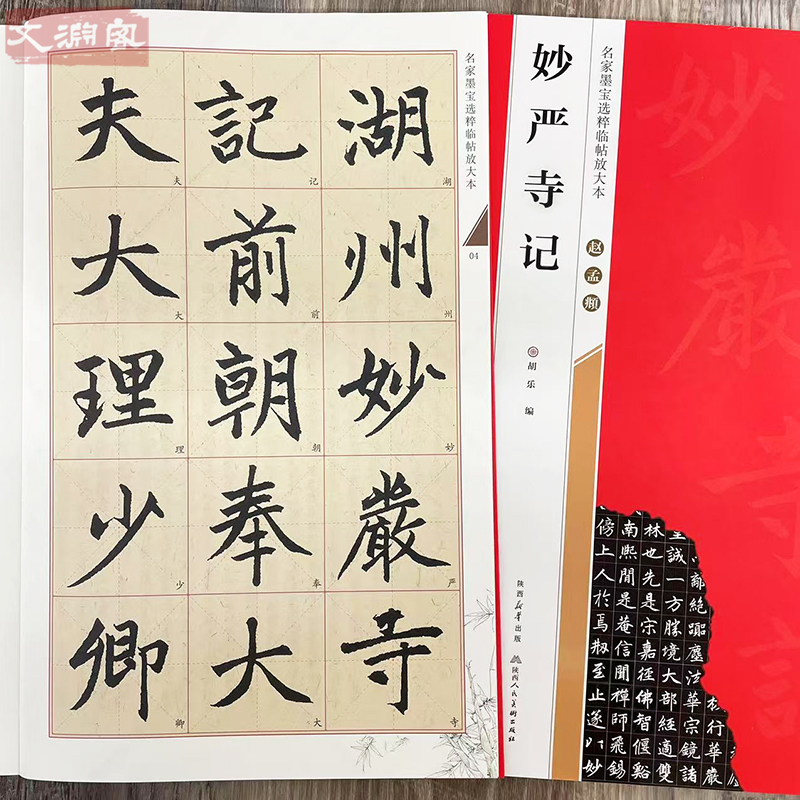 文渊阁
名家墨宝选粹临帖放大本
04
湖州妙嚴寺
湖州妙严寺
記前朝奉大
记前朝奉大
夫大理少卿
夫大理少卿
名家墨宝选粹临帖放大本
妙严寺记
赵孟頫
胡乐 编
陕西新华出版
陕西人民美术出版社
妙嚴寺記
行華嚴
鄰絕囂塵法華宗鏡諸
誠一方勝境大部經適雙
林也先是宋嘉徑佛智偃谿
南熙間是菴信聞禪師飛錫
傍上人於焉刱至止遂以妙